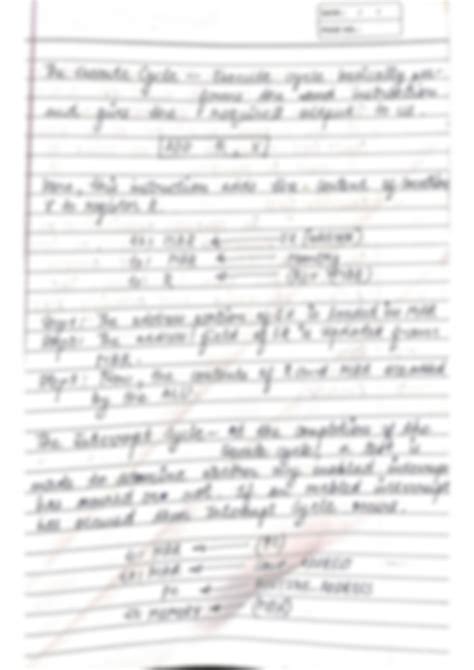 The Execute Cycle - Execute cycle basically per-
forms the instruction
and give the required output to us.
ADD R, X
Here, this instruction adds the content of location
X to register R.
t1: MAR ← IR (
t2: MBR ← Memory
t3: R ← (R) + (MBR)
Step 1: The address portion of IR is loaded in MAR
Step 2: The address field of IR is updated from
MBR.
Step 3: Now, the contents of R and MBR are added
by the ALU.
The Interrupt Cycle - At the completion of the
Execute cycle, a test is
made to determine whether any enabled interrupt
has occured or not. If an enabled interrupt
has occured then Interrupt Cycle occurs.
t1: MBR ← (PC)
t2: MAR ← ADDRESS
PC ← ROUTINE ADDRESS
t3: MEMORY ← (MBR)